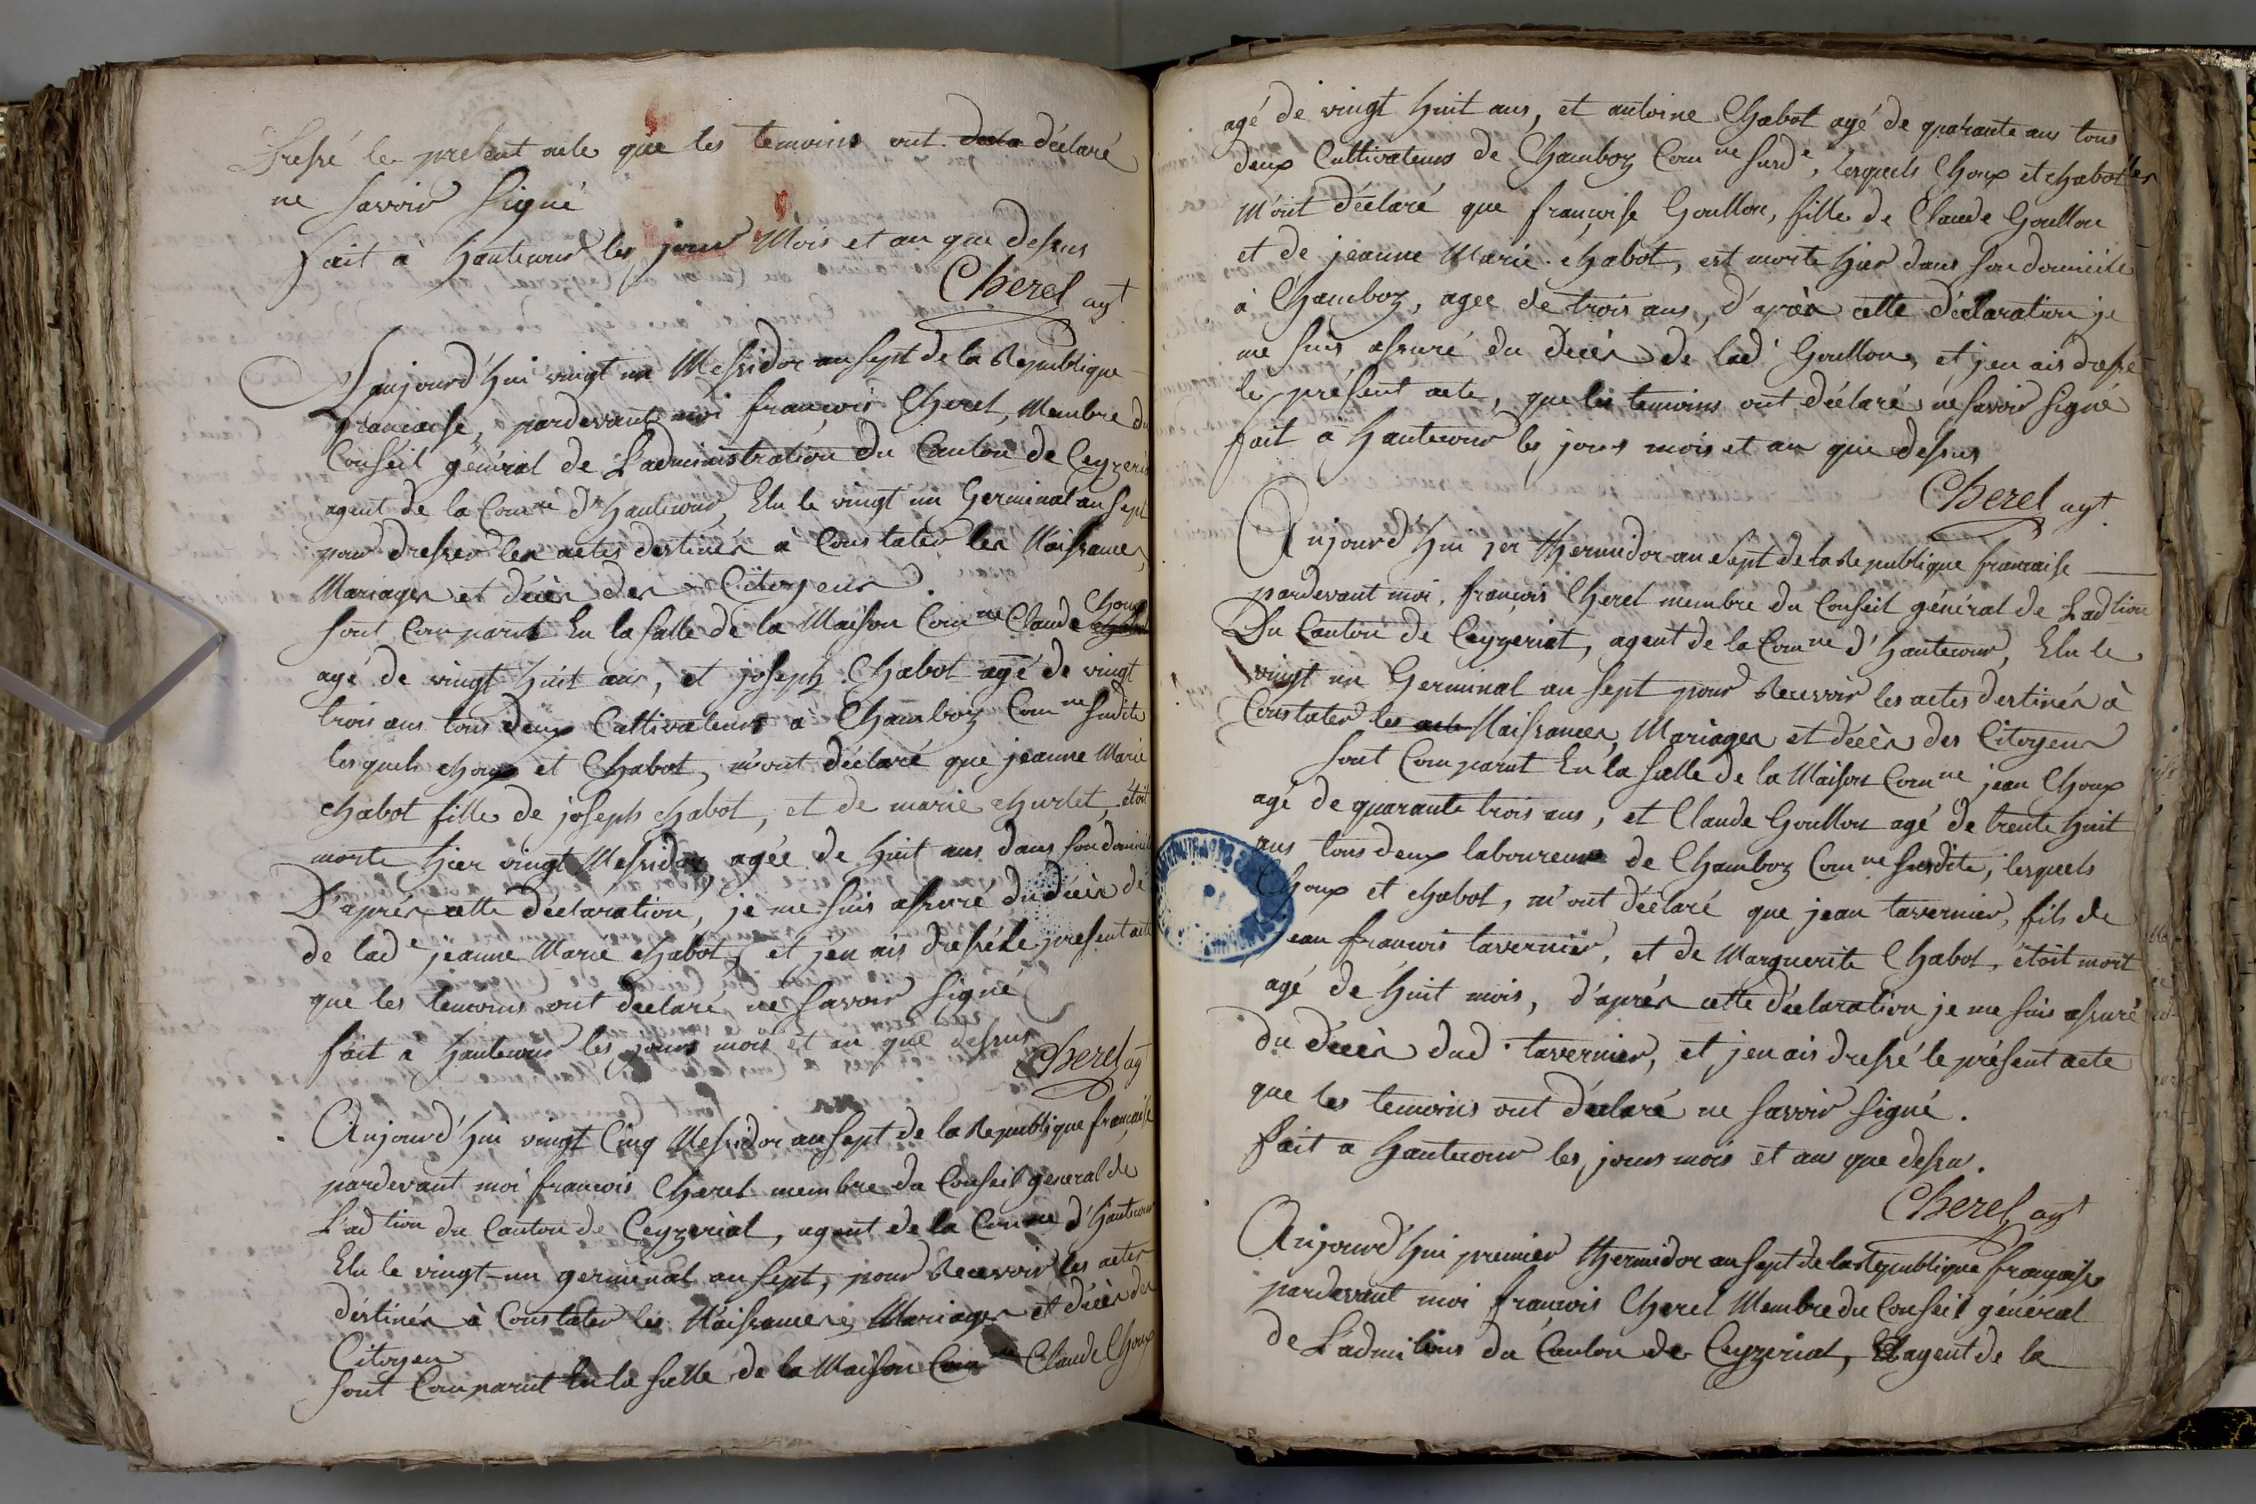 Dressé le present acte que les temoins ont decla déclaré
ne Savoir Signé
fait à hautecour les jour Mois et an que dessus
Cherel agt
Laujourd'hui vingt un Messidor an sept de la Republique
française, pardevant moi françois Cherel, Membre du
Conseil général de L'administration du Canton de Ceyzeria
agent de la Comne d'hautecour, Elu le vingt un Germinal an Sept
pour dresser les actes destinés à Constater les Naissances,
Mariages et décès des Citoyens.
Choux
Sont Comparut En la Salle de la Maison Comne Claude
agé de vingt huit ans, et joseph Chabot agé de vingt
trois ans tous deux Cultivateurs à Chamboz Comne Susdite
lesquels choux et Chabot, m'ont déclaré que jeanne Marie
chabot fille de joseph chabot, et de marie churlet, étoit
morte hier vingt Messidor, agée de huit ans dans Son domicile
D'après cette déclaration, je me Suis assuré du décès de
de lade jeanne Marie chabot, et j'en ais dressé le present acte
que les temoins ont declaré ne Savoir Signé
fait à hautecour les jours mois et an que dessus
Cherel agt
Aujourd'hui vingt Cinq Messidor an Sept de la Republique française
pardevant moi francois Cherel membre du Conseil general de
L'adtion du Canton de Ceyzeriat, agent de la Comne d'hautecour
Elu le vingt-un germinal an Sept, pour Recevoir les actes
déstinés à Constater les Naissances, Mariages et décès des
Citoyen
Sont Comparut En la Salle de la Maison Comne Claude Choux
agé de vingt huit ans, et antoine Chabot agé de quarante ans tous
deux Cultivateurs de Chamboz Comne Susde, lesquels Choux et chabot
M'ont déclaré que françoise Goullon, fille de Claude Goullon
et de jeanne Marie chabot, est morte hier dans Son domicile
à Chamboz, agee de trois ans, d'après cette déclaration je
me Suis assuré du decès de lade Goullon, et j'en ais dressé
le présent acte, que les temoins ont déclaré ne Savoir Signé
fait à hautecour les jours mois et an que dessus
Cherel agt
Aujourd'hui 1er thermidor an Sept de la Republique francaise
pardevant moi, françois Cherel membre du Conseil général de L'adtion
Du Canton de Ceyzeriat, agent de la Comne d'hautecour, Elu le
vingt un Germinal an Sept pour Recevoir les actes destinés à
Constater les acte Naissances, Mariages et décès des Citoyens
Sont Comparut En la Salle de la Maison Comne jean Choux
agé de quarante trois ans, et Claude Goullon agé de trente huit
ans tous deux laboureurs de Chamboz Comne Susdite, lesquels
Choux et chabot, m'ont déclaré que jean tavernier, fils de
jean francois tavernier, et de Marguerite Chabot, étoit mort
agé de huit mois, d'après cette déclaration je me Suis assuré
du décès dud. tavernier, et j'en ais dressé le présent acte
que les temoins ont déclaré ne Savoir Signé.
fait a hautecour les jours mois et ans que dessus.
Cherel agt
Aujourd'hui premier thermidor an Sept de la Republique française
pardevant moi francois Cherel Membre du Conseil général
de L'admitions du Canton de Ceyzeriat, Et agent de la